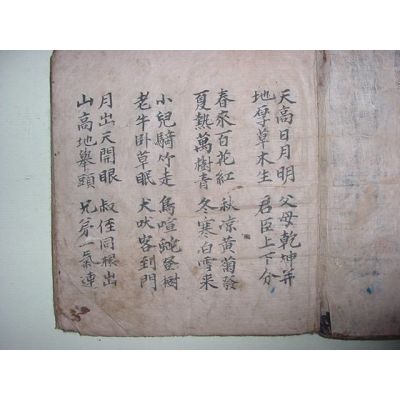 天高日月明 父母乾坤并
地厚草木生 君臣上下分
春來百花紅 秋凉黃菊發
夏熱萬樹青 冬寒白雪来
小兒騎竹走 鳥喧蛇登樹
老牛卧草眠 犬吠客到門
月出天開眼 叔侄同根出
山高地舉頭 兄弟一氣連